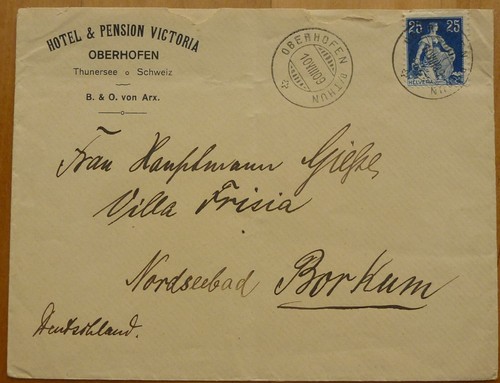 HOTEL & PENSION VICTORIA
OBERHOFEN
Thunersee o Schweiz
B. & O. von Arx.
OBERHOFEN B/THUN
10 VIII 09
25 25
HELVETIA
Frau Hauptmann Gieße,
Villa Frisia
Nordseebad Borkum
Deutschland.